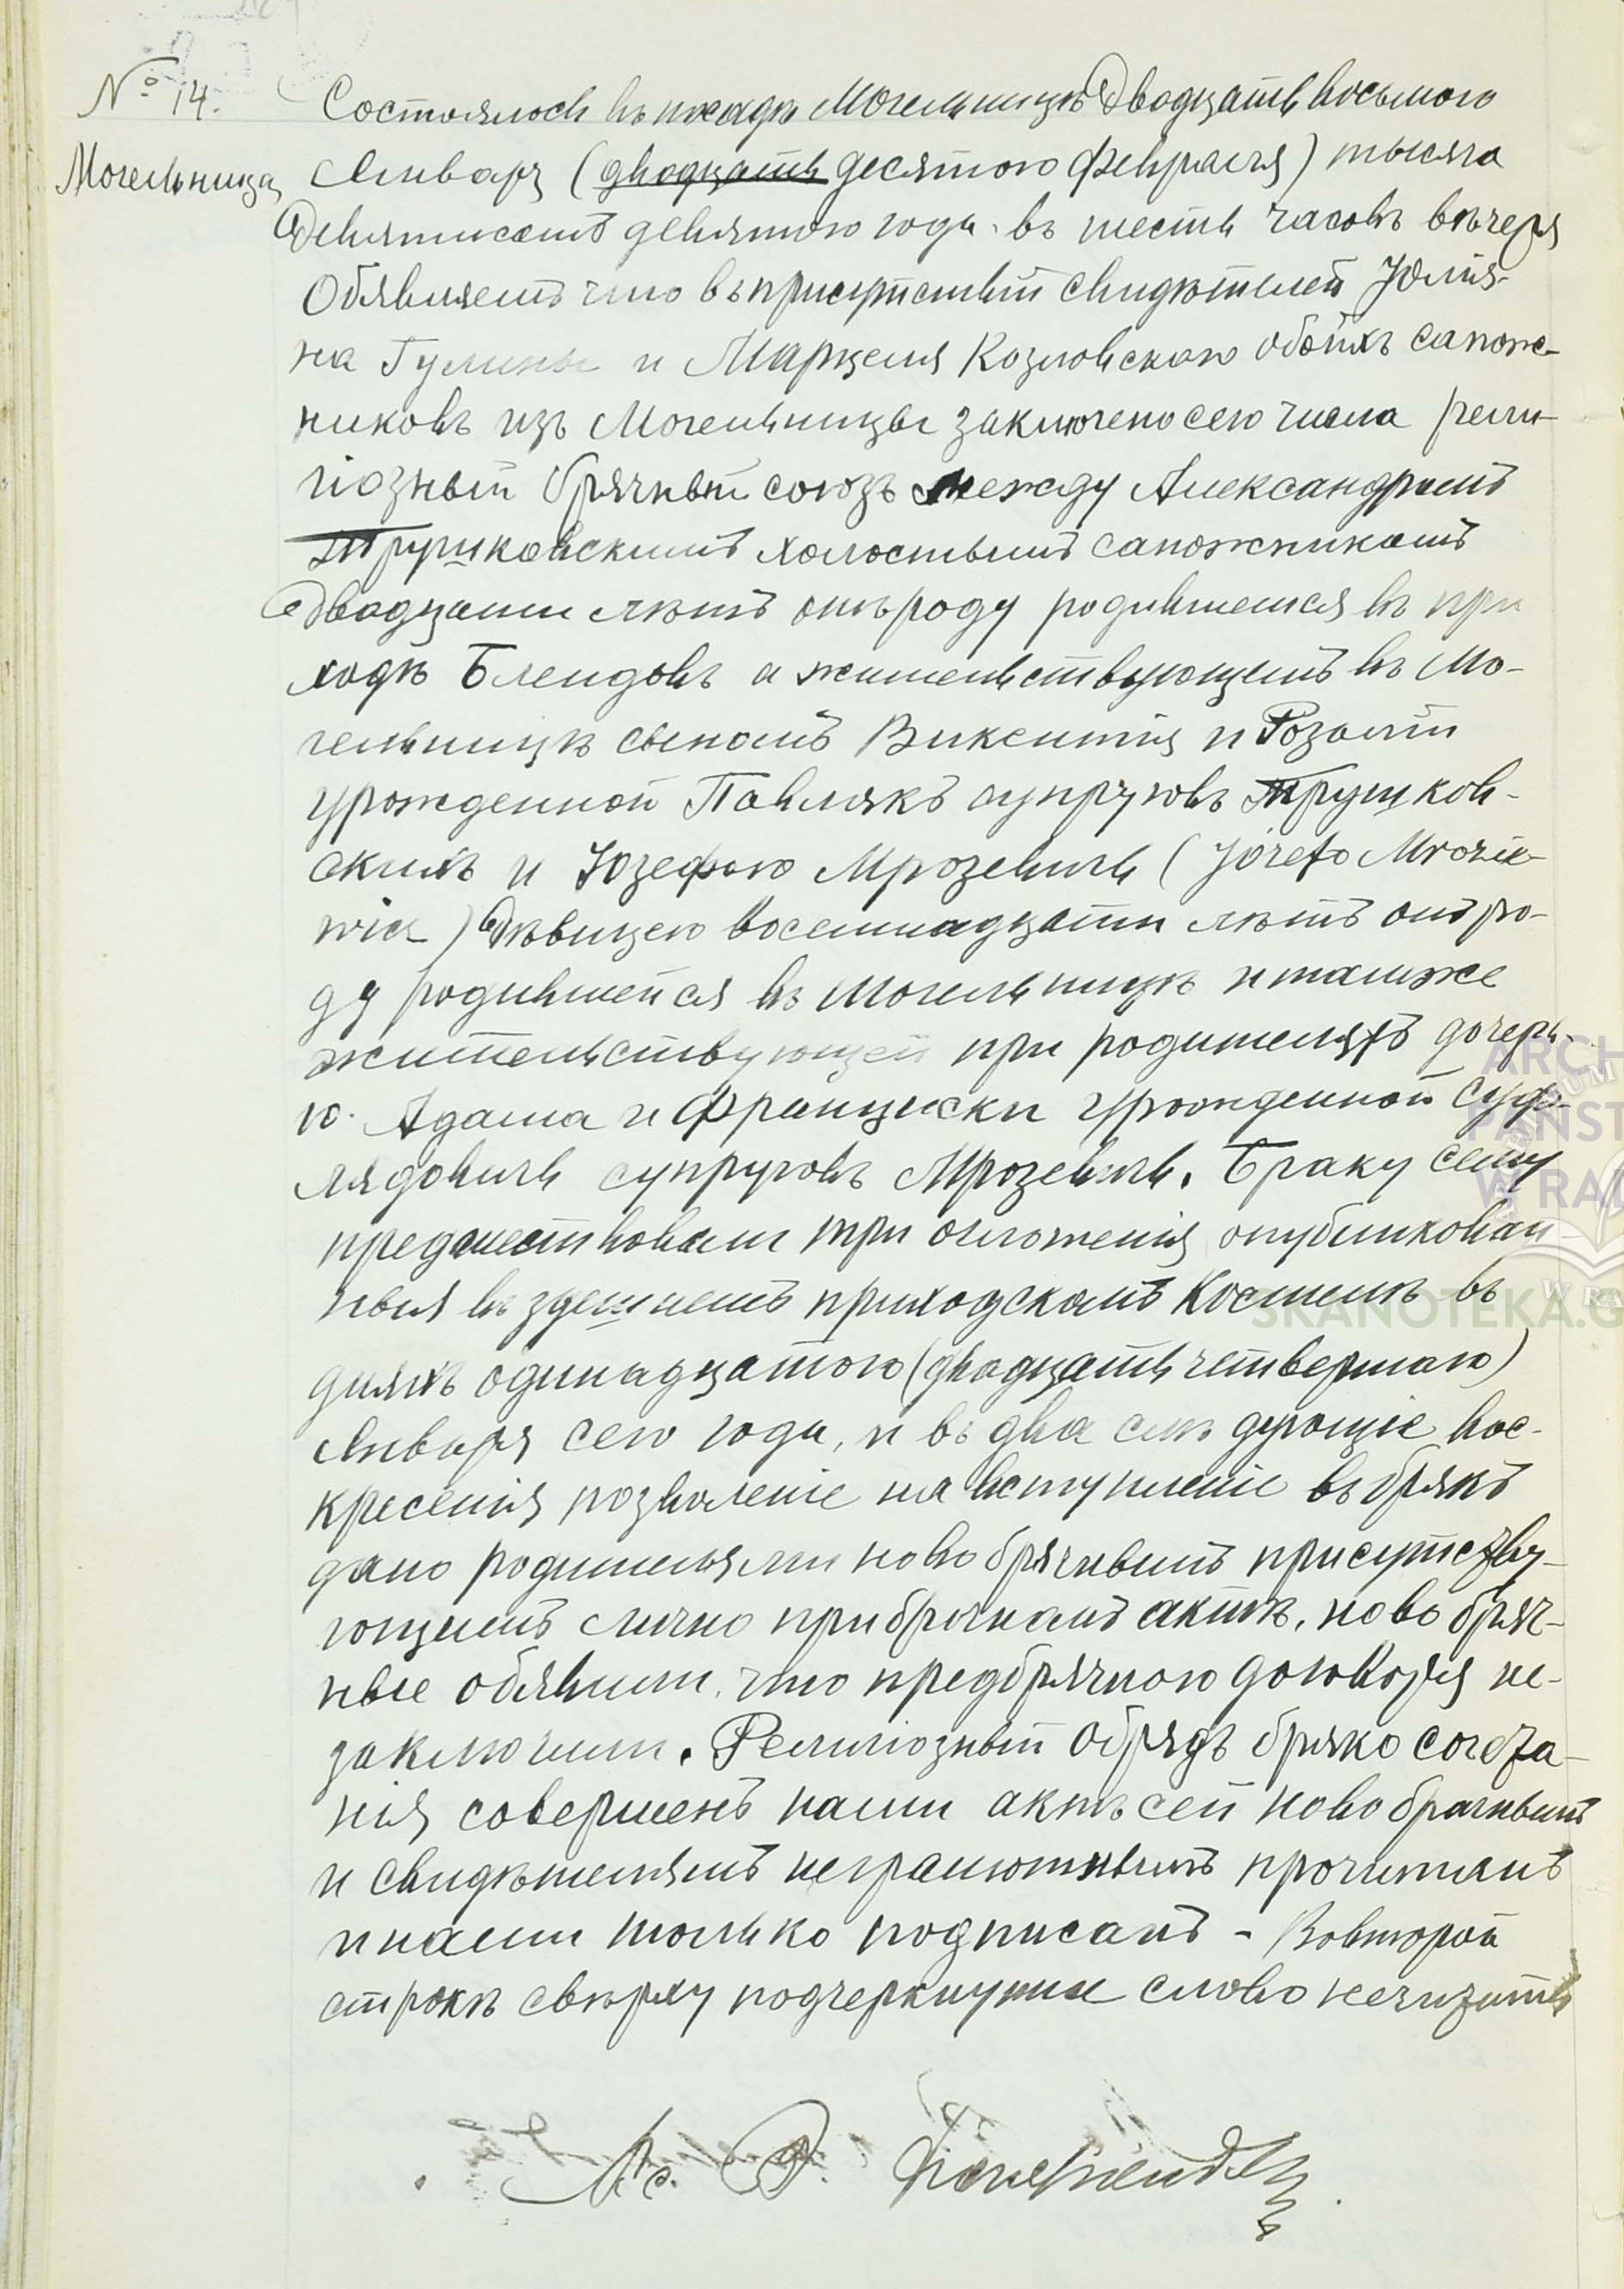 № 14.
Могельница
Состоялось въ посадѣ Могельницѣ Двадцать восьмого
Января (двадцать десятого Февраля) тысяча
Девятисотъ девятого года въ шесть часовъ вѣчера
Обявляемъ что въ присутствіи свидѣтелей Юлія-
на Гулины и Марцеля Козловскаго обоихъ сапож-
никовъ изъ Могельницы заключено сего числа рели-
гіозный брачный союзъ между Александромъ
Трушковскимъ холостымъ сапожникомъ
Двадцати лѣтъ отъ роду родившемся въ при
ходѣ Блендовъ а жительствующемъ въ Мо-
гельницѣ сыномъ Викентія и Розаліи
урожденной Павлякъ супруговъ Трушков-
скихъ и Юзефою Мрозевичъ (Józefą Mrozie-
wicz) Дѣвицею восемнадцати лѣтъ отъ ро-
ду родившейся въ Могельницѣ и тамже
жительствующей при родителяхъ дочерь-
ю Адама и Францишки урожденной
супруговъ Мрозевичъ. Браку сему
предшествовали три оглошенія опубликован
ныя въ здешнемъ приходскомъ Костелѣ въ
дняхъ одинадцатого (двадцать четвертаго)
Января сего года, и въ два слѣдующіе вос-
кресенія позволеніе на вступленіе въ бракъ
дано родителями новобрачнымъ присутству-
ющимъ лично при брачномъ актѣ, новобрач-
ные обявили, что предбрачного договора не-
заключили. Религіозный Обрядъ бракосочета-
нія совершенъ нами актъ сей новобрачнымъ
и свидѣтелямъ неграмотнымъ прочитанъ
и нами только подписанъ - Вовторой
строкѣ свѣрху подчеркнутое слово нечитать
ARCH
PAŃST
W RAD
SKANOTEKA.G